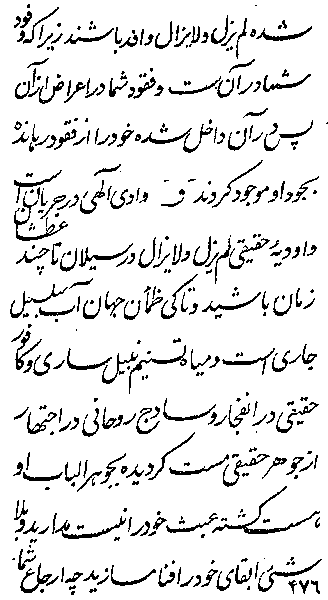 شده لم یزل و لا یزال وافد باشند زیرا که وفود
شما در آن است و فقود شما در اعراض از آن
پس در آن داخل شده خود را از فقود رهانده
بجود او موجود گردند ق وادی الهی در جریان است
و اودیهٔ حقیقی لم یزل و لا یزال در سیلان تا چند عطشان
زمان باشید و تا کی ظمأن جهان آب سلسبیل
جاری است و میاه تسنیم نبیل ساری و کافور
حقیقی در انفجار و ساذج روحانی در اجتهار
از جوهر حقیقی مست گردیده بجوهر الباب او
هست گشته عبث خود را نیست مدارید و بلا
شیئ ابقای خود را فنا مسازید چه ارجاع شما
۲۷۶